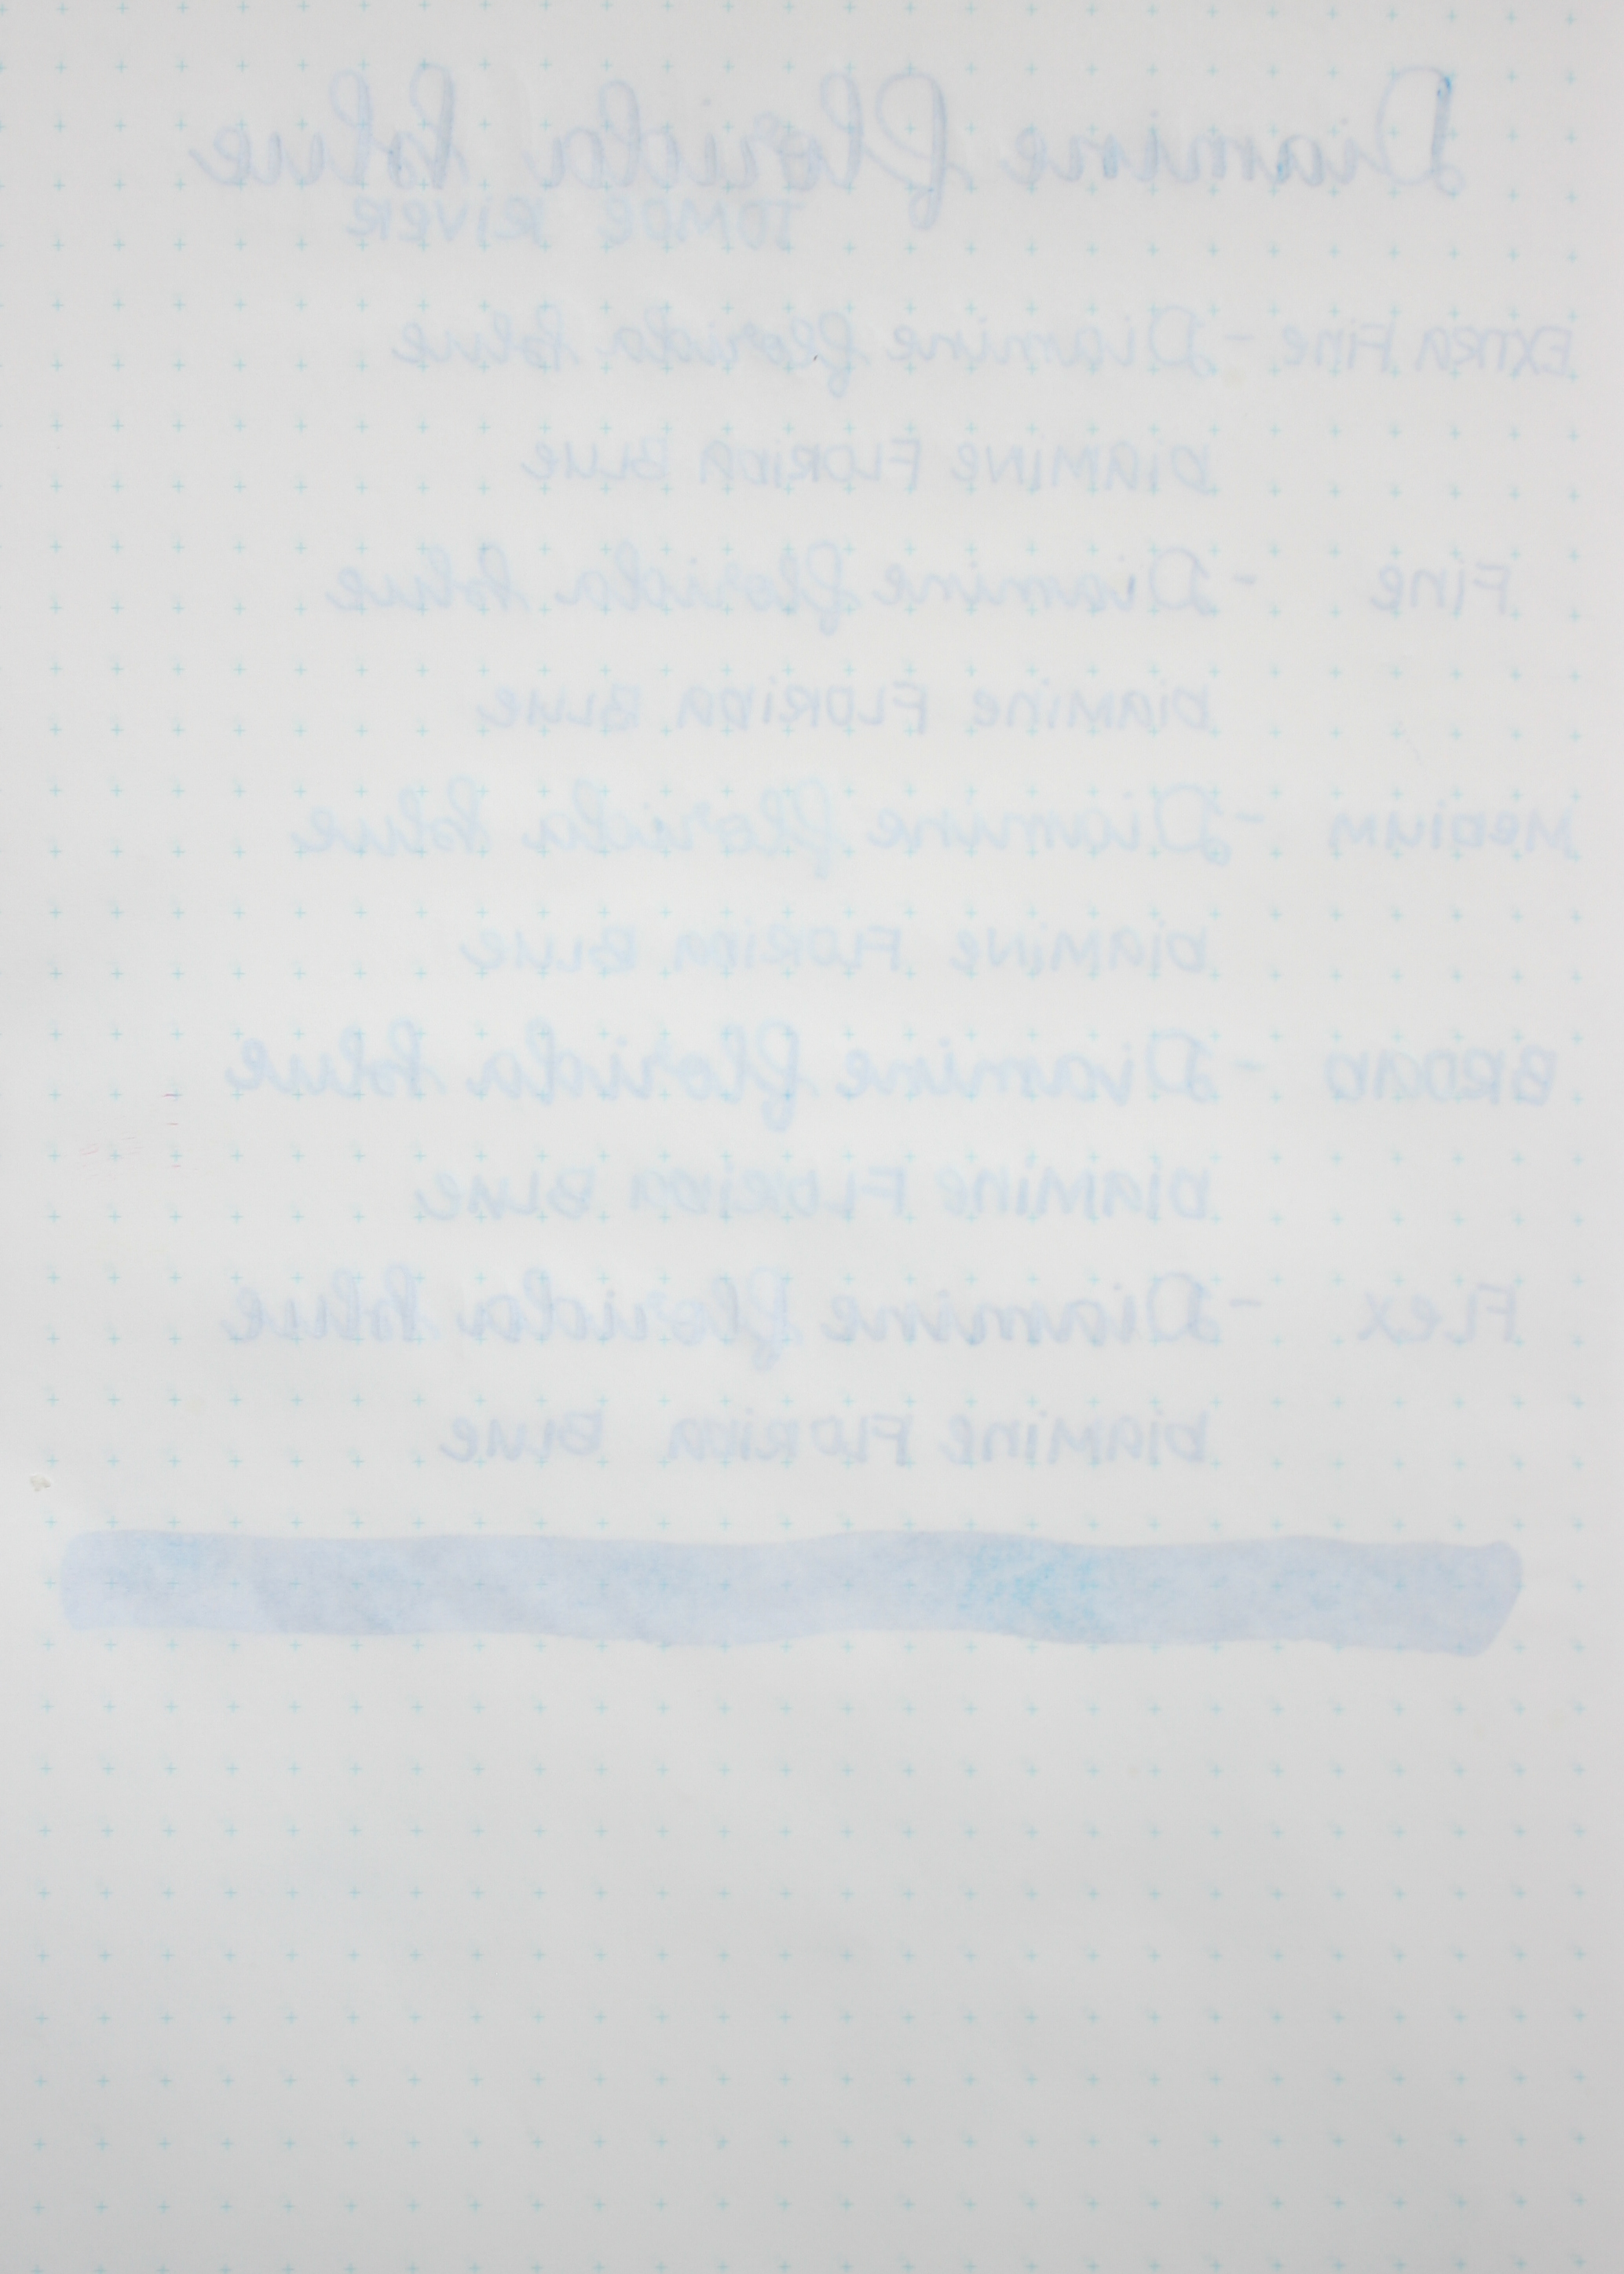 Diamine Florida Blue
TOMOE RIVER
EXTRA Fine - Diamine Florida Blue
DIAMINE FLORIDA BLUE
Fine - Diamine Florida Blue
DIAMINE FLORIDA BLUE
MEDIUM - Diamine Florida Blue
DIAMINE FLORIDA BLUE
BROAD - Diamine Florida Blue
DIAMINE FLORIDA BLUE
FLEX - Diamine Florida Blue
DIAMINE FLORIDA BLUE